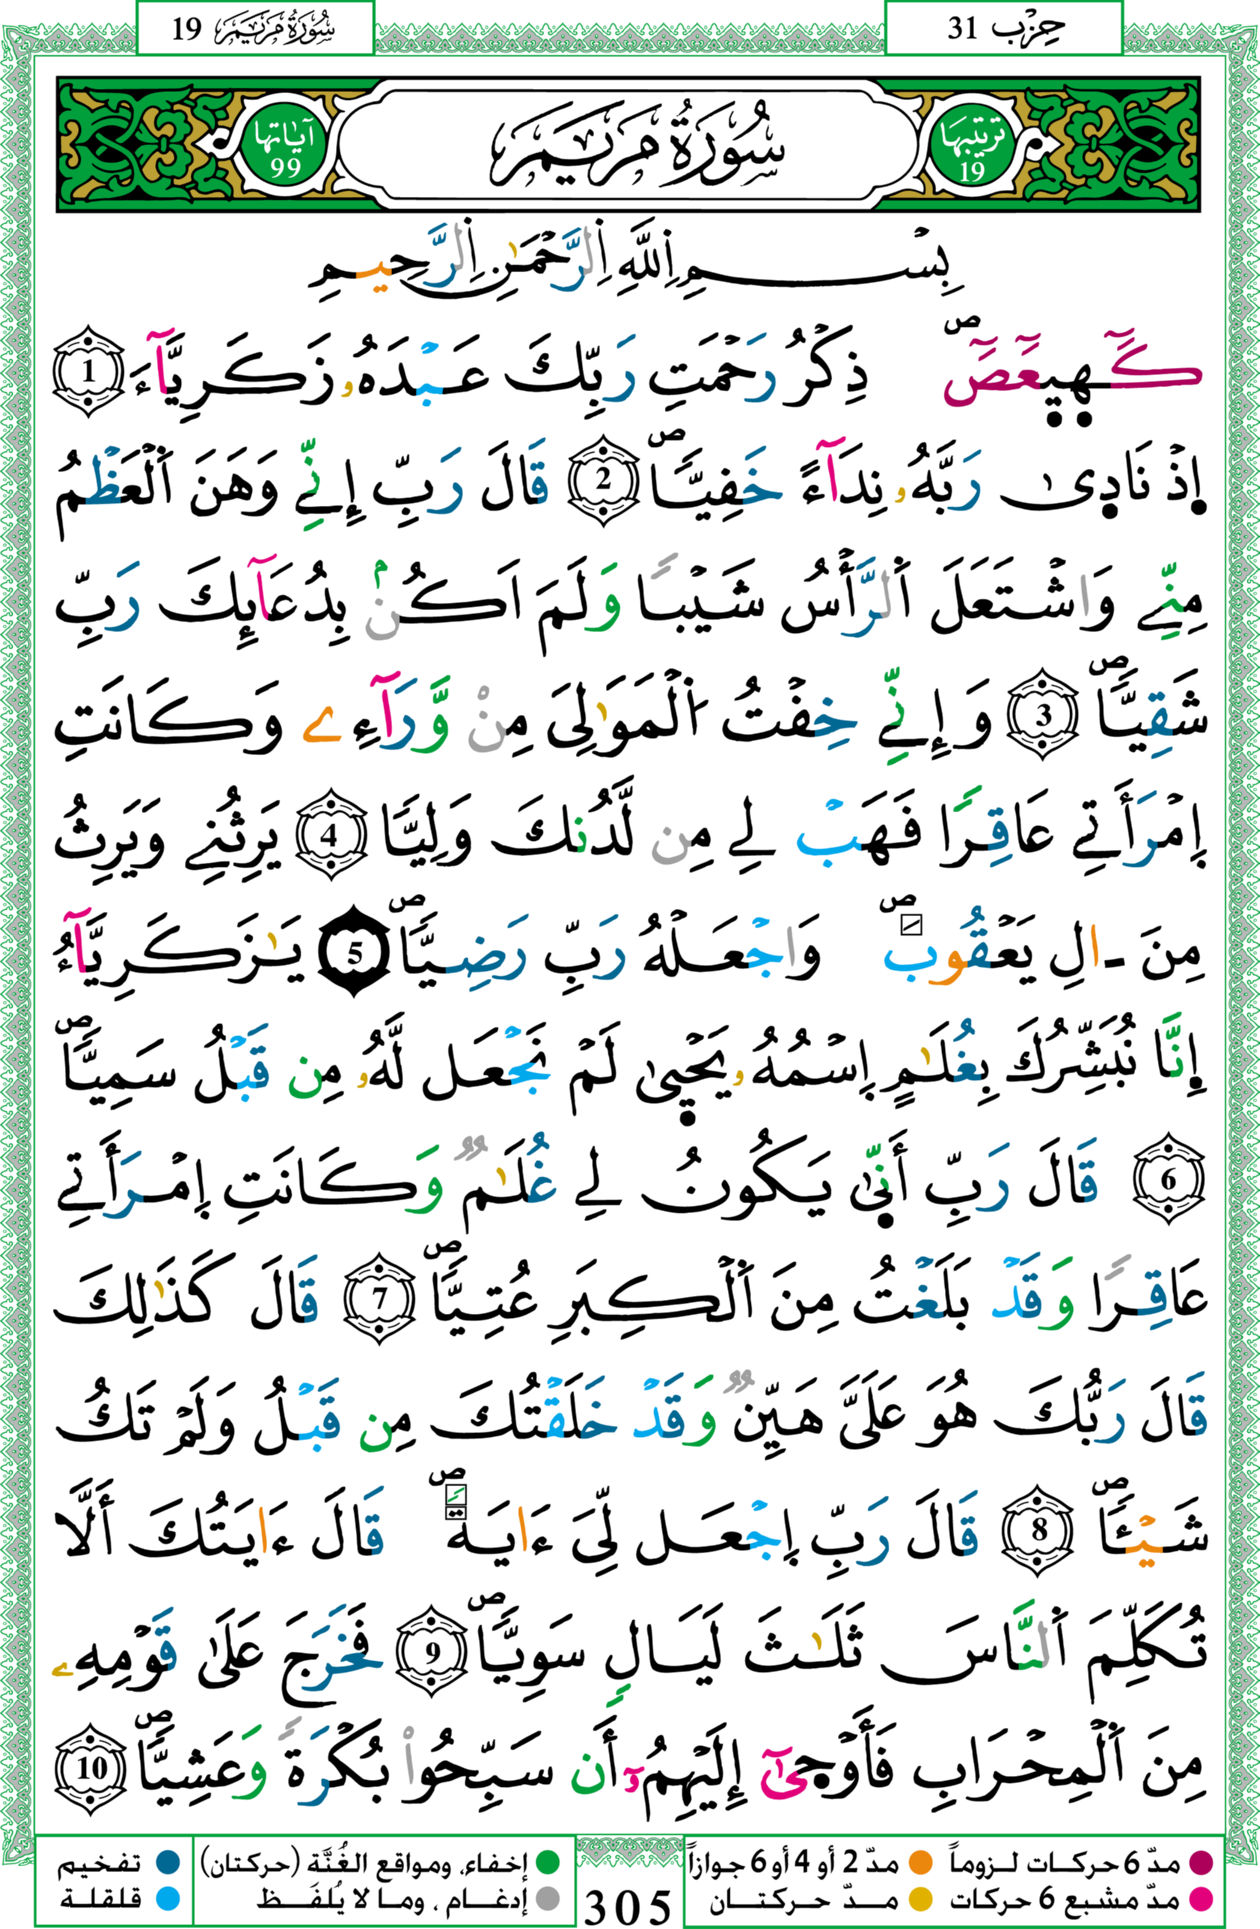 حِزْب 31
سُورَةُ مَرْيَمَ 19
ترتيبها 19
سُورَةُ مَرْيَمَ
آياتها 99
بِسْمِ اِ۬للَّهِ اِ۬لرَّحْمَٰنِ اِ۬لرَّحِيمِ
كَٓهيعَٓصَٓۖ ذِكْرُ رَحْمَتِ رَبِّكَ عَبْدَهُۥ زَكَرِيَّآءَ 1
إِذْ نَادِىٰ رَبَّهُۥ نِدَآءً خَفِيّاًۖ 2 قَالَ رَبِّ إِنِّے وَهَنَ اَ۬لْعَظْمُ
مِنِّے وَاشْتَعَلَ اَ۬لرَّأْسُ شَيْباً وَلَمَ اَكُنۢ بِدُعَآئِكَ رَبِّ
شَقِيّاًۖ 3 وَإِنِّے خِفْتُ اُ۬لْمَوَٰلِىَ مِنْ وَّرَآءِے وَكَانَتِ
اِ۪مْرَأَتِے عَاقِراً فَهَبْ لِے مِن لَّدُنكَ وَلِيّاً 4 يَرِثُنِے وَيَرِثُ
مِنَ ـ اٰلِ يَعْقُوبَۖ وَاجْعَلْهُ رَبِّ رَضِيّاًۖ 5 يَٰزَكَرِيَّآءُ
اِ۪نَّا نُبَشِّرُكَ بِغُلَٰمٍ اِ۪سْمُهُۥ يَحْيِىٰ لَمْ نَجْعَل لَّهُۥ مِن قَبْلُ سَمِيّاًۖ
6 قَالَ رَبِّ أَنِّىٰ يَكُونُ لِے غُلَٰمٌ وَكَانَتِ اِ۪مْرَأَتِے
عَاقِراً وَقَدْ بَلَغْتُ مِنَ اَ۬لْكِبَرِ عُتِيّاًۖ 7 قَالَ كَذَٰلِكَ
قَالَ رَبُّكَ هُوَ عَلَيَّ هَيِّنٌ وَقَدْ خَلَقْتُكَ مِن قَبْلُ وَلَمْ تَكُ
شَيْـٔاًۖ 8 قَالَ رَبِّ اِ۪جْعَل لِّيَ ءَايَةًۖ قَالَ ءَايَتُكَ أَلَّا
تُكَلِّمَ اَ۬لنَّاسَ ثَلَٰثَ لَيَالٍ سَوِيّاًۖ 9 فَخَرَجَ عَلَىٰ قَوْمِهِۦ
مِنَ اَ۬لْمِحْرَابِ فَأَوْحِىٰٓ إِلَيْهِمُۥٓ أَن سَبِّحُواْ بُكْرَةً وَعَشِيّاًۖ 10
مدّ 6 حركات لـزوماً مدّ 2 أو 4 أو 6 جوازاً
مدّ مشبع 6 حركات مـدّ حـركتـان
305
إخفاء، ومواقع الغُنَّة (حركتان) تفخيم
إدغـام ، ومـا لا يُلفَـظ قلقلة